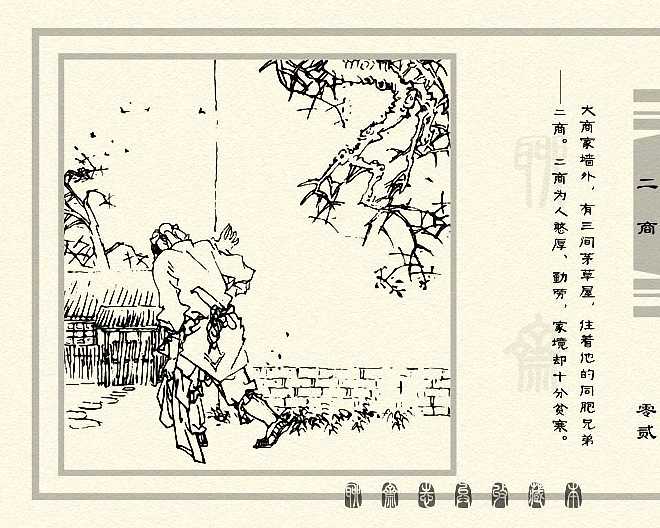 大商家墙外，有三间茅草屋，住着他的同胞兄弟
——二商。二商为人憨厚、勤劳，家境却十分贫寒。
二商
零贰
聊斋志异收藏本
聊斋